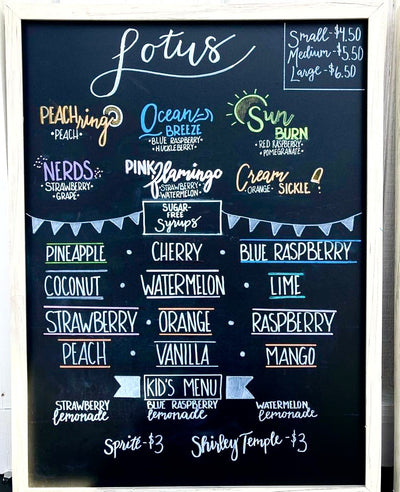 Lotus
Small - $4.50
Medium - $5.50
Large - $6.50
PEACH ring
• PEACH •
Ocean BREEZE
• BLUE RASPBERRY •
HUCKLEBERRY •
Sun BURN
• RED RASPBERRY •
• POMEGRANATE
NERDS
• STRAWBERRY •
GRAPE •
PINK flamingo
• STRAWBERRY
WATERMELON •
Cream SICKLE
ORANGE •
SUGAR-
FREE
Syrups
PINEAPPLE • CHERRY • BLUE RASPBERRY
COCONUT • WATERMELON • LIME
STRAWBERRY • ORANGE • RASPBERRY
PEACH • VANILLA • MANGO
KID'S MENU
STRAWBERRY lemonade
BLUE RASPBERRY lemonade
WATERMELON lemonade
Sprite - $3 Shirley Temple - $3